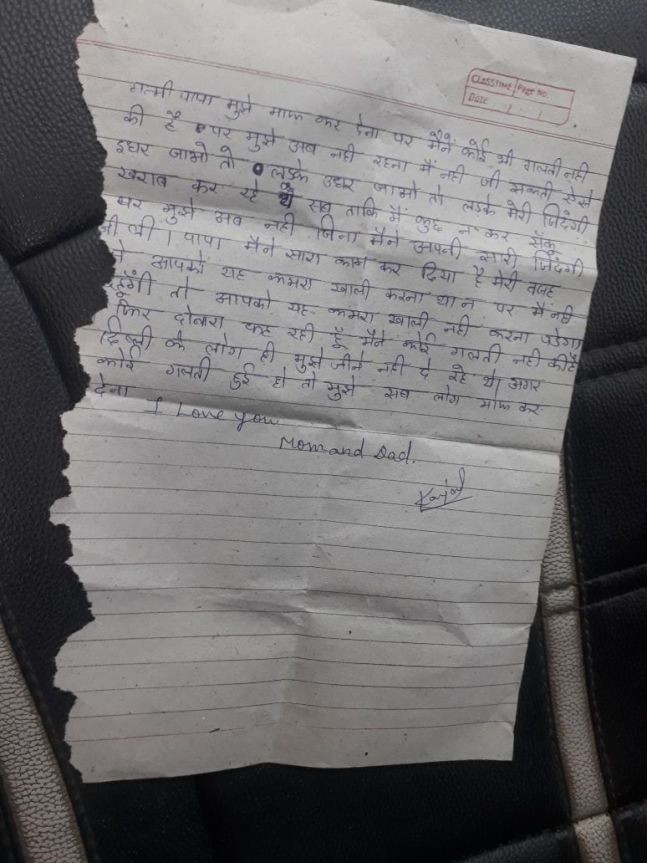 CLASSTIME Page No.
DATE / /
मम्मी पापा मुझे माफ कर देना पर मैंने कोई भी गलती नही
की है पर मुझे अब नही रहना मैं नही जी सकती ऐसे
इधर जाओ तो लड़के उधर जाओ तो लड़के मेरी जिंदगी
खराब कर रहे थे सब ताकि मैं कुछ न कर सकूँ
पर मुझे अब नही जिना मैंने अपनी सारी जिंदगी
जी ली। पापा मैंने सारा काम कर दिया है मेरी वजह
से आपको यह कमरा खाली करना था न पर मैं नही
रहूंगी तो आपको यह कमरा खाली नही करना पडेगा
फिर दोबारा कह रही हूँ मैंने कोई गलती नही की है
दिल्ली के लोग ही मुझे जीने नही दे रहे थे। अगर
कोई गलती हुई हो तो मुझे सब लोग माफ कर
देना I Love you
Mom and Dad.